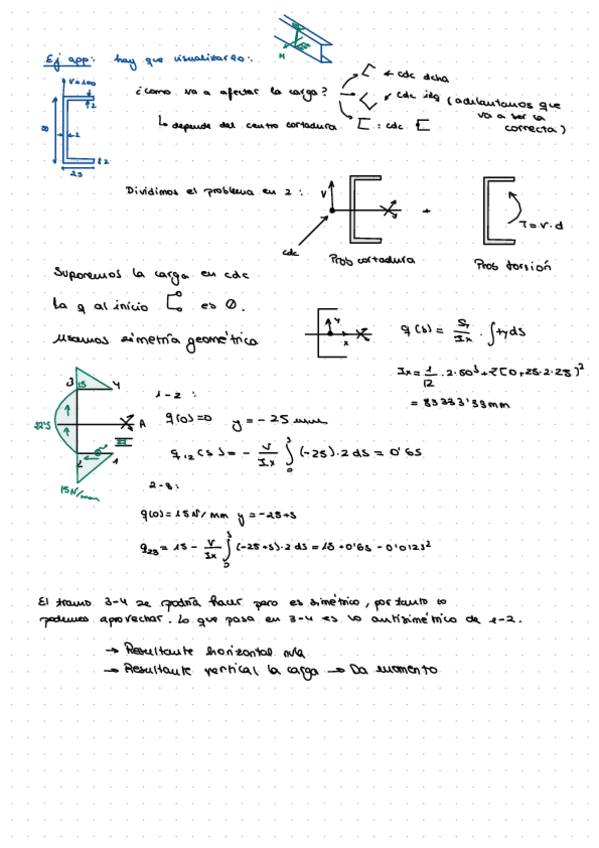 Ej app: hay que visualizarlo:
M
V=1000
2
50
2
2
25
¿como va a afectar la carga?
← cdc dcha
↙ cdc izq (adelantamos que va a ser la correcta)
↳ depende del centro cortadura [ : cdc E
Dividimos el problema en 2:
V
+
T=V·d
cdc
Prob cortadura
Prob torsión
Suponemos la carga en cdc
La q al inicio [ es 0.
usamos simetría geométrica
y
x
q(s) = Sy/Ix · ∫ty ds
Ix = 1/12 · 2·50³ + 2[0+25·2·25]²
= 83333'33mm
3
15
4
22'5
A
2
1
15N/mm
1-2:
q(0)=0 y=-25mm
q12(s) = - V/Ix ∫₀ˢ (-25)·2 ds = 0'6s
2-3:
q(0)=15N/mm y=-25+s
q23 = 15 - V/Ix ∫₀ˢ (-25+s)·2 ds = 15+0'6s-0'012s²
El tramo 3-4 se podría hacer pero es simétrico, por tanto lo
podemos aprovechar. Lo que pasa en 3-4 es lo antisimétrico de 1-2.
→ Resultante horizontal nula
→ Resultante vertical la carga → Da momento